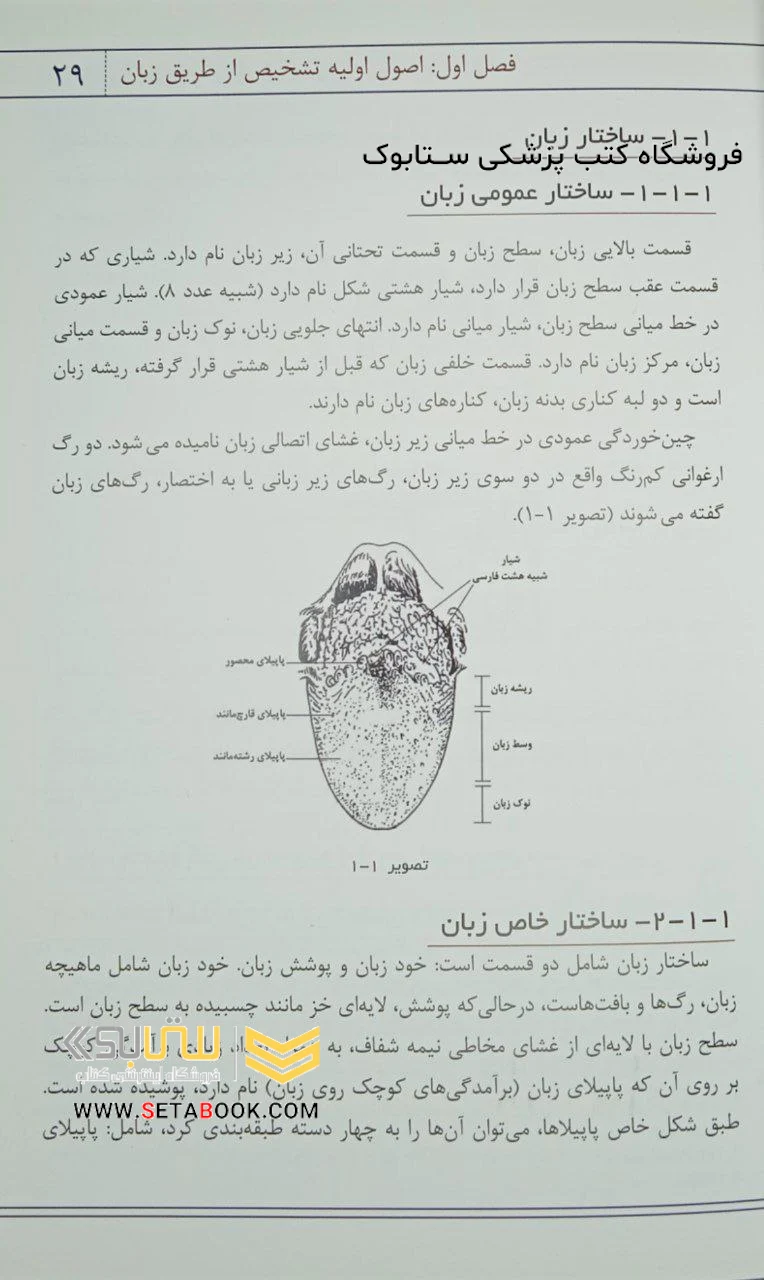 فصل اول: اصول اولیه تشخیص از طریق زبان ۲۹
۱-۱- ساختار زبان
فروشگاه کتب پزشکی ستابوک
۱-۱-۱- ساختار عمومی زبان
قسمت بالایی زبان، سطح زبان و قسمت تحتانی آن، زیر زبان نام دارد. شیاری که در
قسمت عقب سطح زبان قرار دارد، شیار هشتی شکل نام دارد (شبیه عدد ۸). شیار عمودی
در خط میانی سطح زبان، شیار میانی نام دارد. انتهای جلویی زبان، نوک زبان و قسمت میانی
زبان، مرکز زبان نام دارد. قسمت خلفی زبان که قبل از شیار هشتی قرار گرفته، ریشه زبان
است و دو لبه کناری بدنه زبان، کناره‌های زبان نام دارند.
چین‌خوردگی عمودی در خط میانی زیر زبان، غشای اتصالی زبان نامیده می‌شود. دو رگ
ارغوانی کم‌رنگ واقع در دو سوی زیر زبان، رگ‌های زیر زبانی یا به اختصار، رگ‌های زبان
گفته می‌شوند (تصویر ۱-۱).
شیار
شبیه هشت فارسی
پاپیلای محصور
ریشه زبان
پاپیلای قارچ‌مانند
وسط زبان
پاپیلای رشته‌مانند
نوک زبان
تصویر ۱-۱
۱-۱-۲- ساختار خاص زبان
ساختار زبان شامل دو قسمت است: خود زبان و پوشش زبان. خود زبان شامل ماهیچه
زبان، رگ‌ها و بافت‌هاست، درحالی‌که پوشش، لایه‌ای خز مانند چسبیده به سطح زبان است.
سطح زبان با لایه‌ای از غشای مخاطی نیمه شفاف، به
ستابوک
فروشگاه اینترنتی کتاب
بر روی آن که پاپیلای زبان (برآمدگی‌های کوچک روی زبان) نام دارد، پوشیده شده است.
WWW.SETABOOK.COM
طبق شکل خاص پاپیلاها، می‌توان آن‌ها را به چهار دسته طبقه‌بندی کرد، شامل: پاپیلای